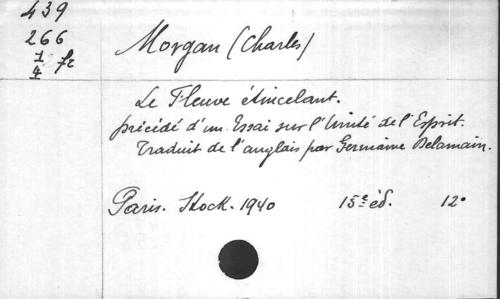 439
266
1/4 fr
Morgan (Charles)
Le Fleuve étincelant.
précédé d'un Essai sur l'Unité de l'Esprit.
Traduit de l'anglais par Germaine Delamain.
Paris. Stock. 1940 15e éd. 12°